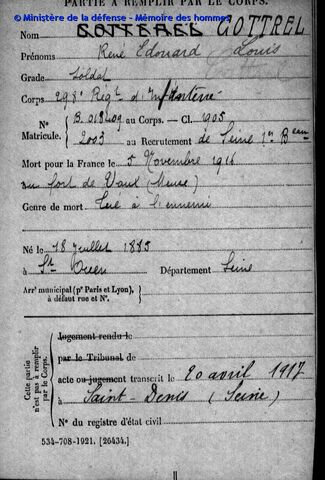 PARTIE À REMPLIR PAR LE CORPS.
© Ministère de la défense - Mémoire des hommes
Nom COTTEREL GOTTREL
Prénoms René Edouard Louis
Grade Soldat
Corps 298e Régt d'Infanterie
N° B.018409 au Corps. — Cl. 1905
Matricule. 2003 au Recrutement de Seine 1er Bau
Mort pour la France le 5 Novembre 1916
au fort de Vaux (Meuse)
Genre de mort Tué à l'ennemi
Né le 18 Juillet 1885
à St Ouen Département Seine
Arrt municipal (pr Paris et Lyon),
à défaut rue et N°.
Cette partie n'est pas à remplir par le Corps.
Jugement rendu le
par le Tribunal de
acte ou jugement transcrit le 20 avril 1917
à Saint-Denis (Seine)
N° du registre d'état civil
534-708-1921. [26434.]